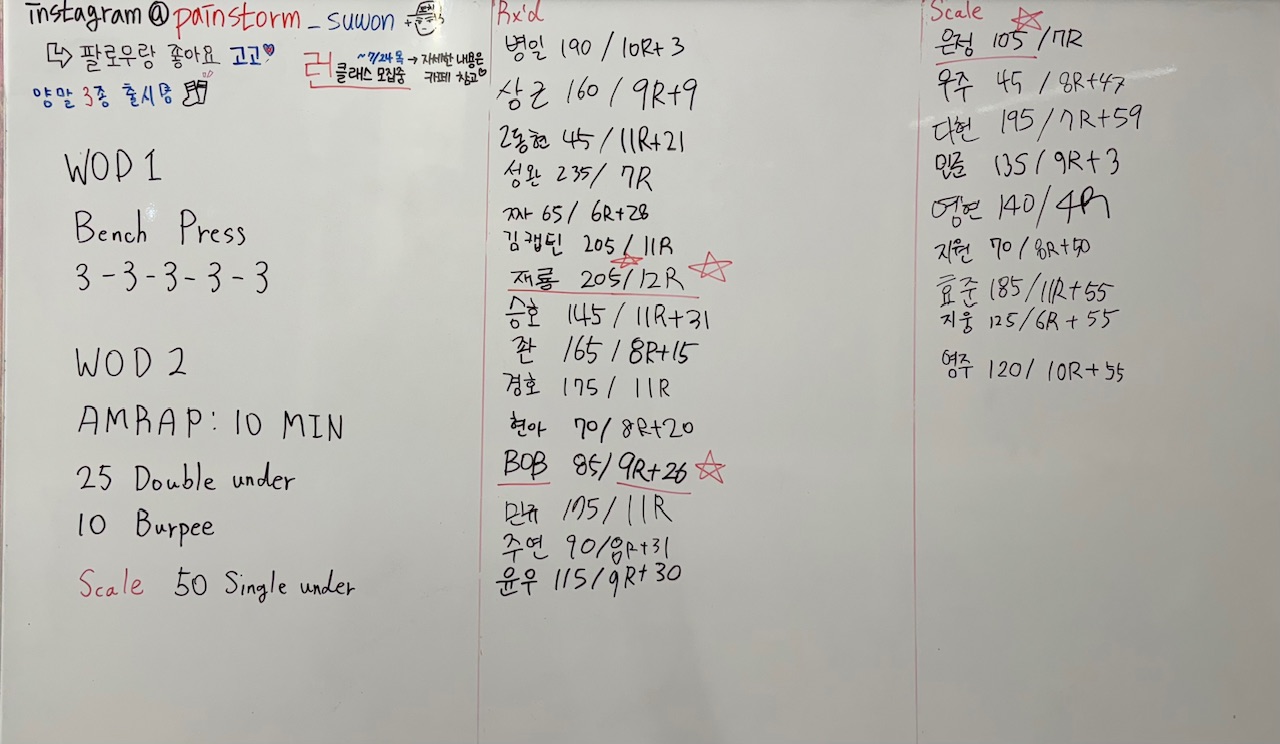 instagram@painstorm_suwon
팔로우랑 좋아요 고고
양말 3종 출시중
런 ~7/24목 → 자세한 내용은
클래스 모집중 카페 참고
WOD 1
Bench Press
3-3-3-3-3
WOD 2
AMRAP: 10 MIN
25 Double under
10 Burpee
Scale 50 Single under
Rx'd
병일 190 / 10R+3
상근 160 / 9R+9
2동현 45/11R+21
성완 235/ 7R
짜 65/ 6R+28
김캡틴 205/11R
재룡 205/12R
승호 145/11R+31
좐 165/8R+15
경호 175/ 11R
현아 70/8R+20
BOB 85/9R+26
민규 175/11R
주연 90/8R+31
윤우 115/9R+30
Scale
은정 105/7R
우주 45/8R+47
다헌 195/7R+59
민준 135/9R+3
영현 140/4R
지원 70/8R+50
효준 185/11R+55
지웅 125/6R+55
영주 120/10R+55